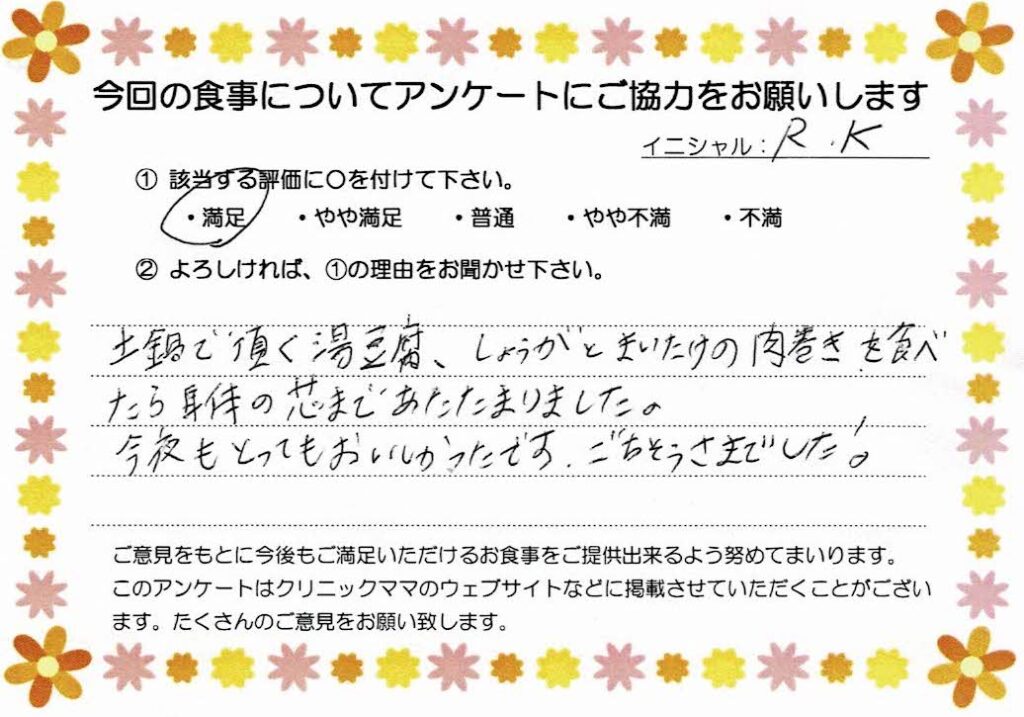 今回の食事についてアンケートにご協力をお願いします
イニシャル：R.K
① 該当する評価に〇を付けて下さい。
・満足　・やや満足　・普通　・やや不満　・不満
② よろしければ、①の理由をお聞かせ下さい。
土鍋で頂く湯豆腐、しょうがとまいたけの肉巻きを食べ
たら身体の芯まであたたまりました。
今夜もとってもおいしかったです。ごちそうさまでした!
ご意見をもとに今後もご満足いただけるお食事をご提供出来るよう努めてまいります。
このアンケートはクリニックママのウェブサイトなどに掲載させていただくことがござい
ます。たくさんのご意見をお願い致します。